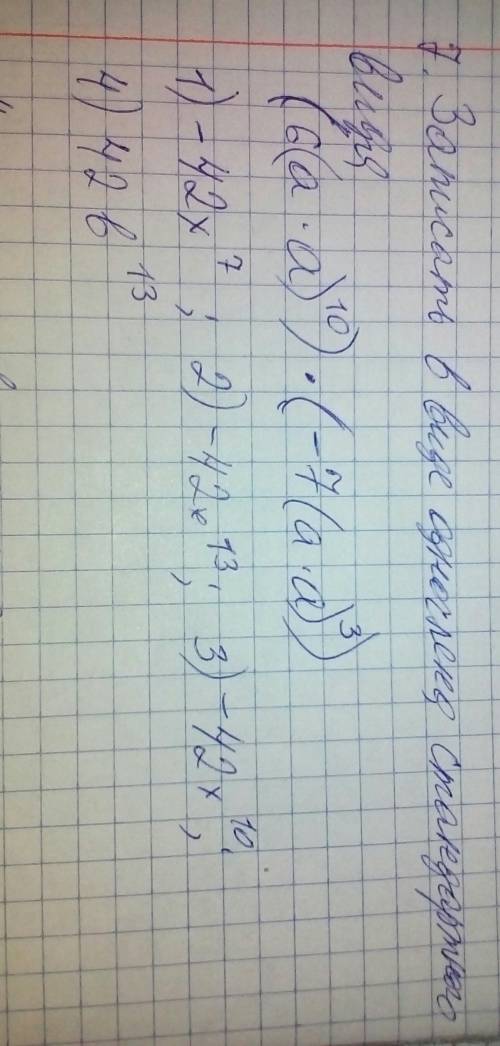 7. Записать в виде одночлена стандартного
вида
(6(a · a)¹⁰) · (-7(a · a)³)
1) -42x⁷; 2) -42x¹³; 3) -42x¹⁰;
4) 42b¹³